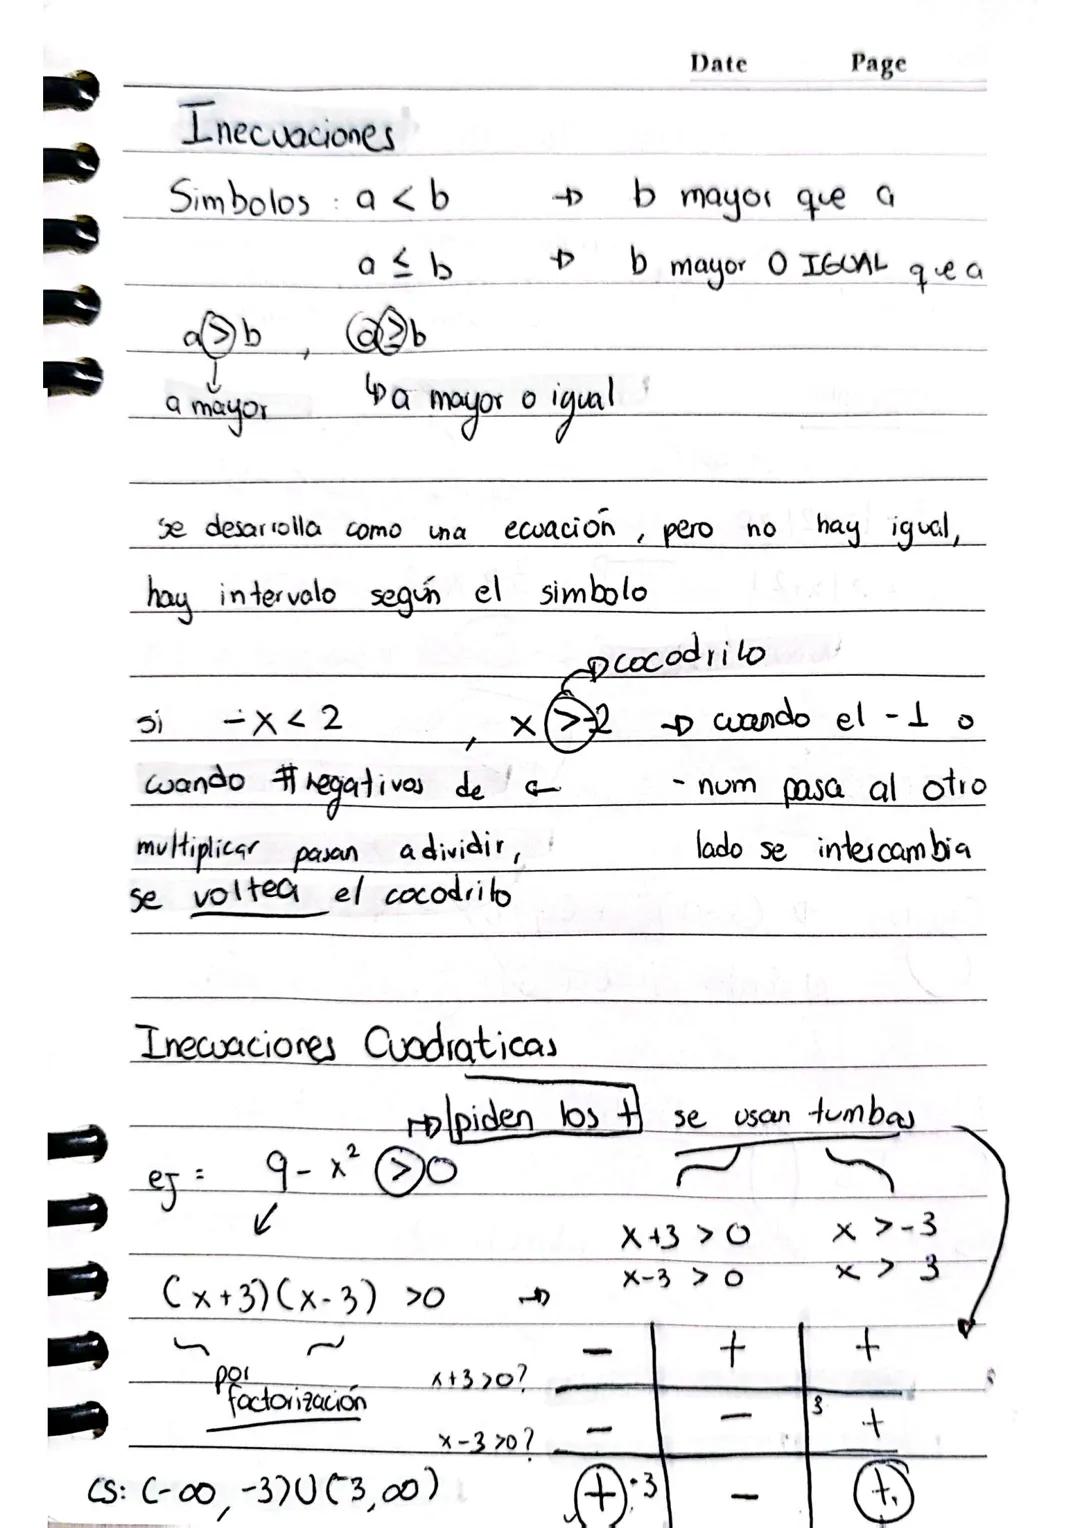 Date Page
Inecuaciones
Simbolos : a < b → b mayor que a
a ≤ b → b mayor O IGUAL que a
a > b , a ≥ b
a mayor ↳ a mayor o igual
se desarrolla como una ecuación, pero no hay igual,
hay intervalo según el simbolo
→ cocodrilo
si -x < 2 , x > -2 → cuando el -1 o
cuando # negativos de ← - num pasa al otro
multiplicar pasan a dividir, lado se intercambia
se voltea el cocodrilo
Inecuaciones Cuadraticas
→ piden los + se usan tumbas
ej = 9 - x² > 0
x+3 > 0 x > -3
x-3 > 0 x > 3
(x+3)(x-3) > 0 →
- + +
por x+3>0?
factorización
3
- - +
x-3>0?
CS: (-∞, -3)U(-3,∞) + -3 - +